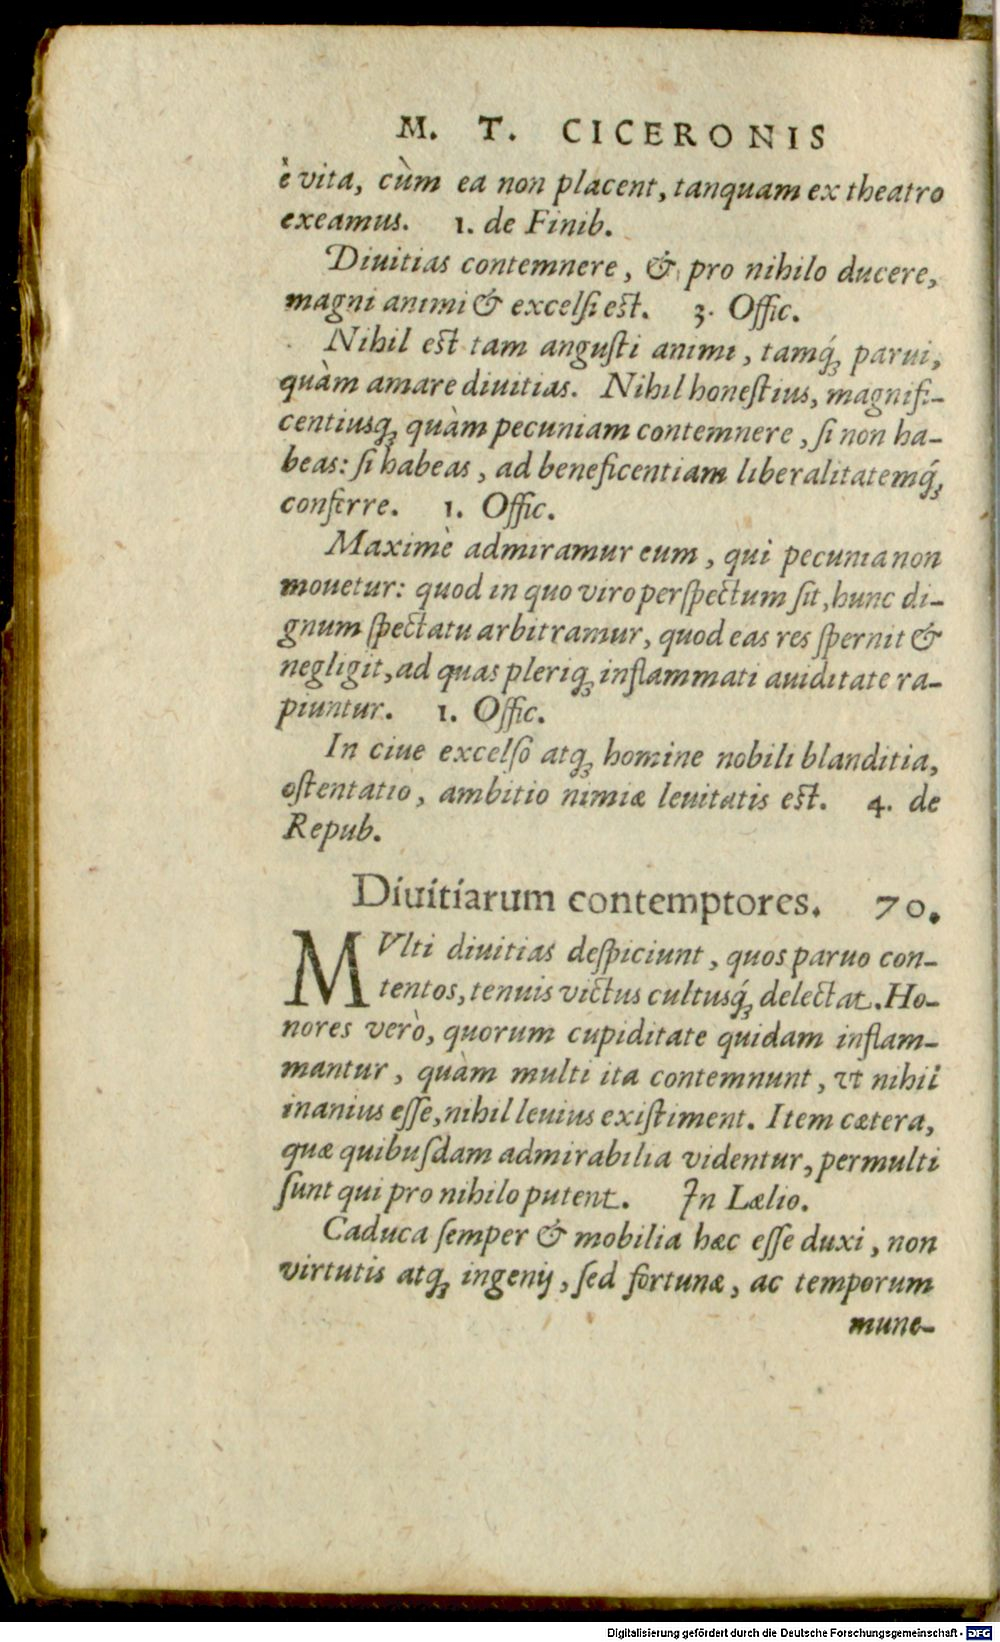 M. T. CICERONIS
è vita, cùm ea non placent, tanquam ex theatro
exeamus. 1. de Finib.
Diuitias contemnere, & pro nihilo ducere,
magni animi & excelſi est. 3. Offic.
Nihil est tam anguſti animi, tamq́ꝫ parui,
quàm amare diuitias. Nihil honeſtius, magnifi-
centiusqꝫ quàm pecuniam contemnere, ſi non ha-
beas: ſi habeas, ad beneficentiam liberalitatemq́ꝫ
conferre. 1. Offic.
Maximè admiramur eum, qui pecunia non
mouetur: quod in quo viro perſpectum ſit, hunc di-
gnum ſpectatu arbitramur, quod eas res ſpernit &
negligit, ad quas pleriqꝫ inflammati auiditate ra-
piuntur. 1. Offic.
In ciue excelſo atqꝫ homine nobili blanditia,
oſtentatio, ambitio nimiæ leuitatis est. 4. de
Repub.
Diuitiarum contemptores. 70.
MVlti diuitias deſpiciunt, quos paruo con-
tentos, tenuis victus cultusq́ꝫ delectat. Ho-
nores verò, quorum cupiditate quidam inflam-
mantur, quàm multi ita contemnunt, vt nihil
inanius eſſe, nihil leuius exiſtiment. Item cætera,
quæ quibuſdam admirabilia videntur, permulti
ſunt qui pro nihilo putent. In Lælio.
Caduca ſemper & mobilia hæc eſſe duxi, non
virtutis atqꝫ ingenij, ſed fortunæ, ac temporum
mune-
Digitalisierung gefördert durch die Deutsche Forschungsgemeinschaft - DFG